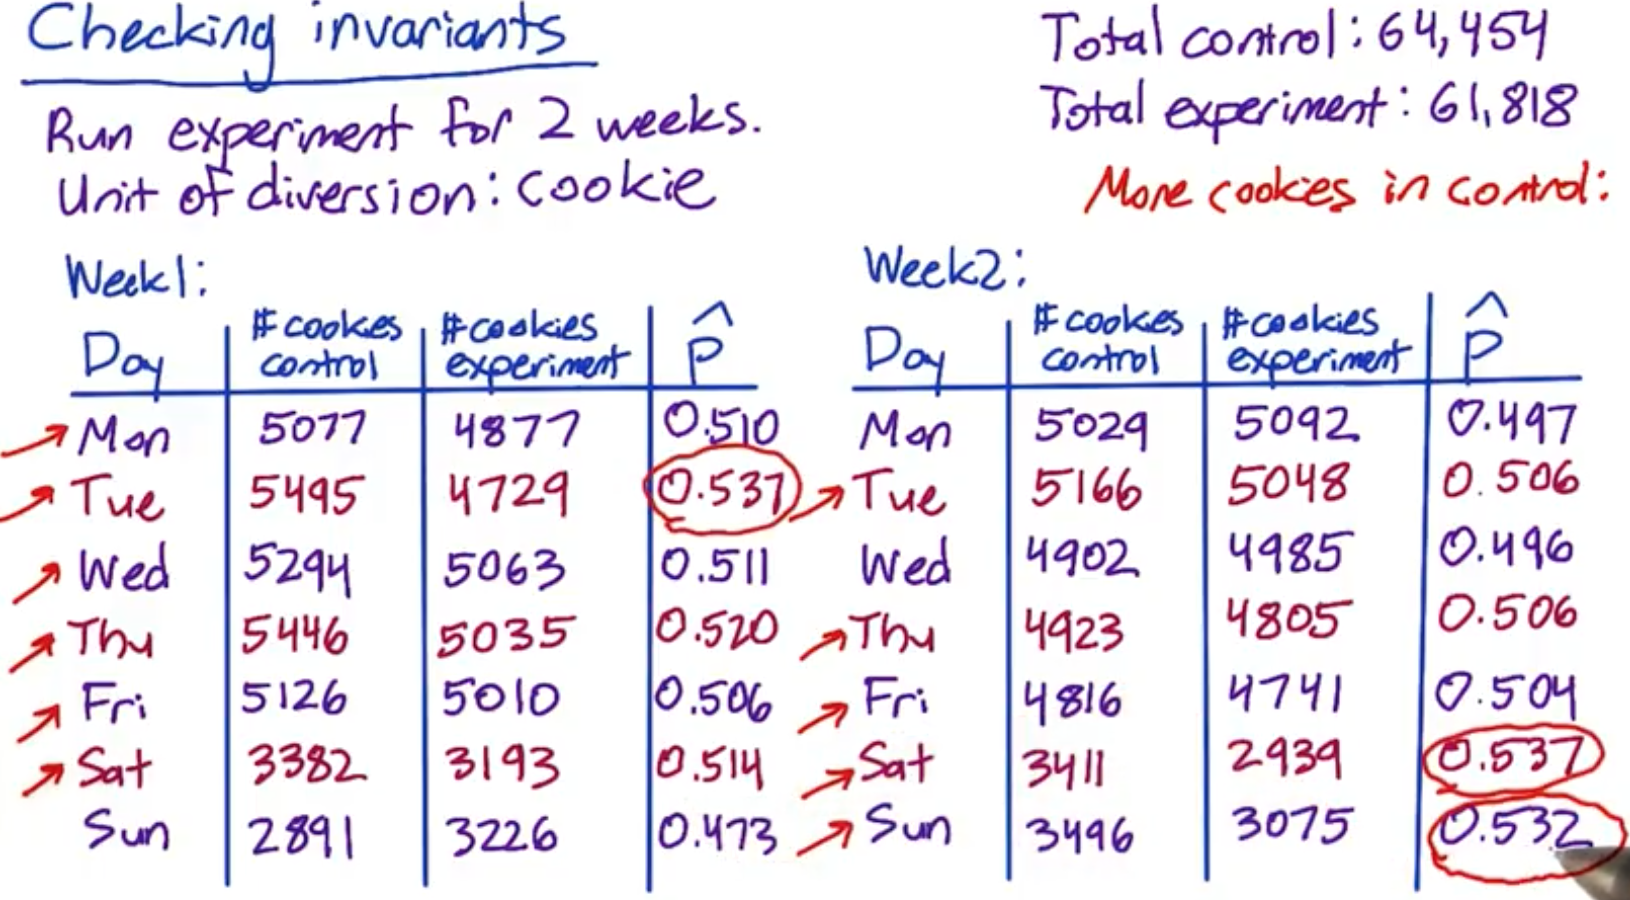 Checking invariants
Run experiment for 2 weeks.
Unit of diversion: cookie
Total control: 64,454
Total experiment: 61,818
More cookies in control:
Week1:
Day # cookies control # cookies experiment p̂
Mon 5077 4877 0.510
Tue 5495 4729 0.537
Wed 5294 5063 0.511
Thu 5446 5035 0.520
Fri 5126 5010 0.506
Sat 3382 3193 0.514
Sun 2891 3226 0.473
Week2:
Day # cookies control # cookies experiment p̂
Mon 5029 5092 0.497
Tue 5166 5048 0.506
Wed 4902 4985 0.496
Thu 4923 4805 0.506
Fri 4816 4741 0.504
Sat 3411 2939 0.537
Sun 3496 3075 0.532